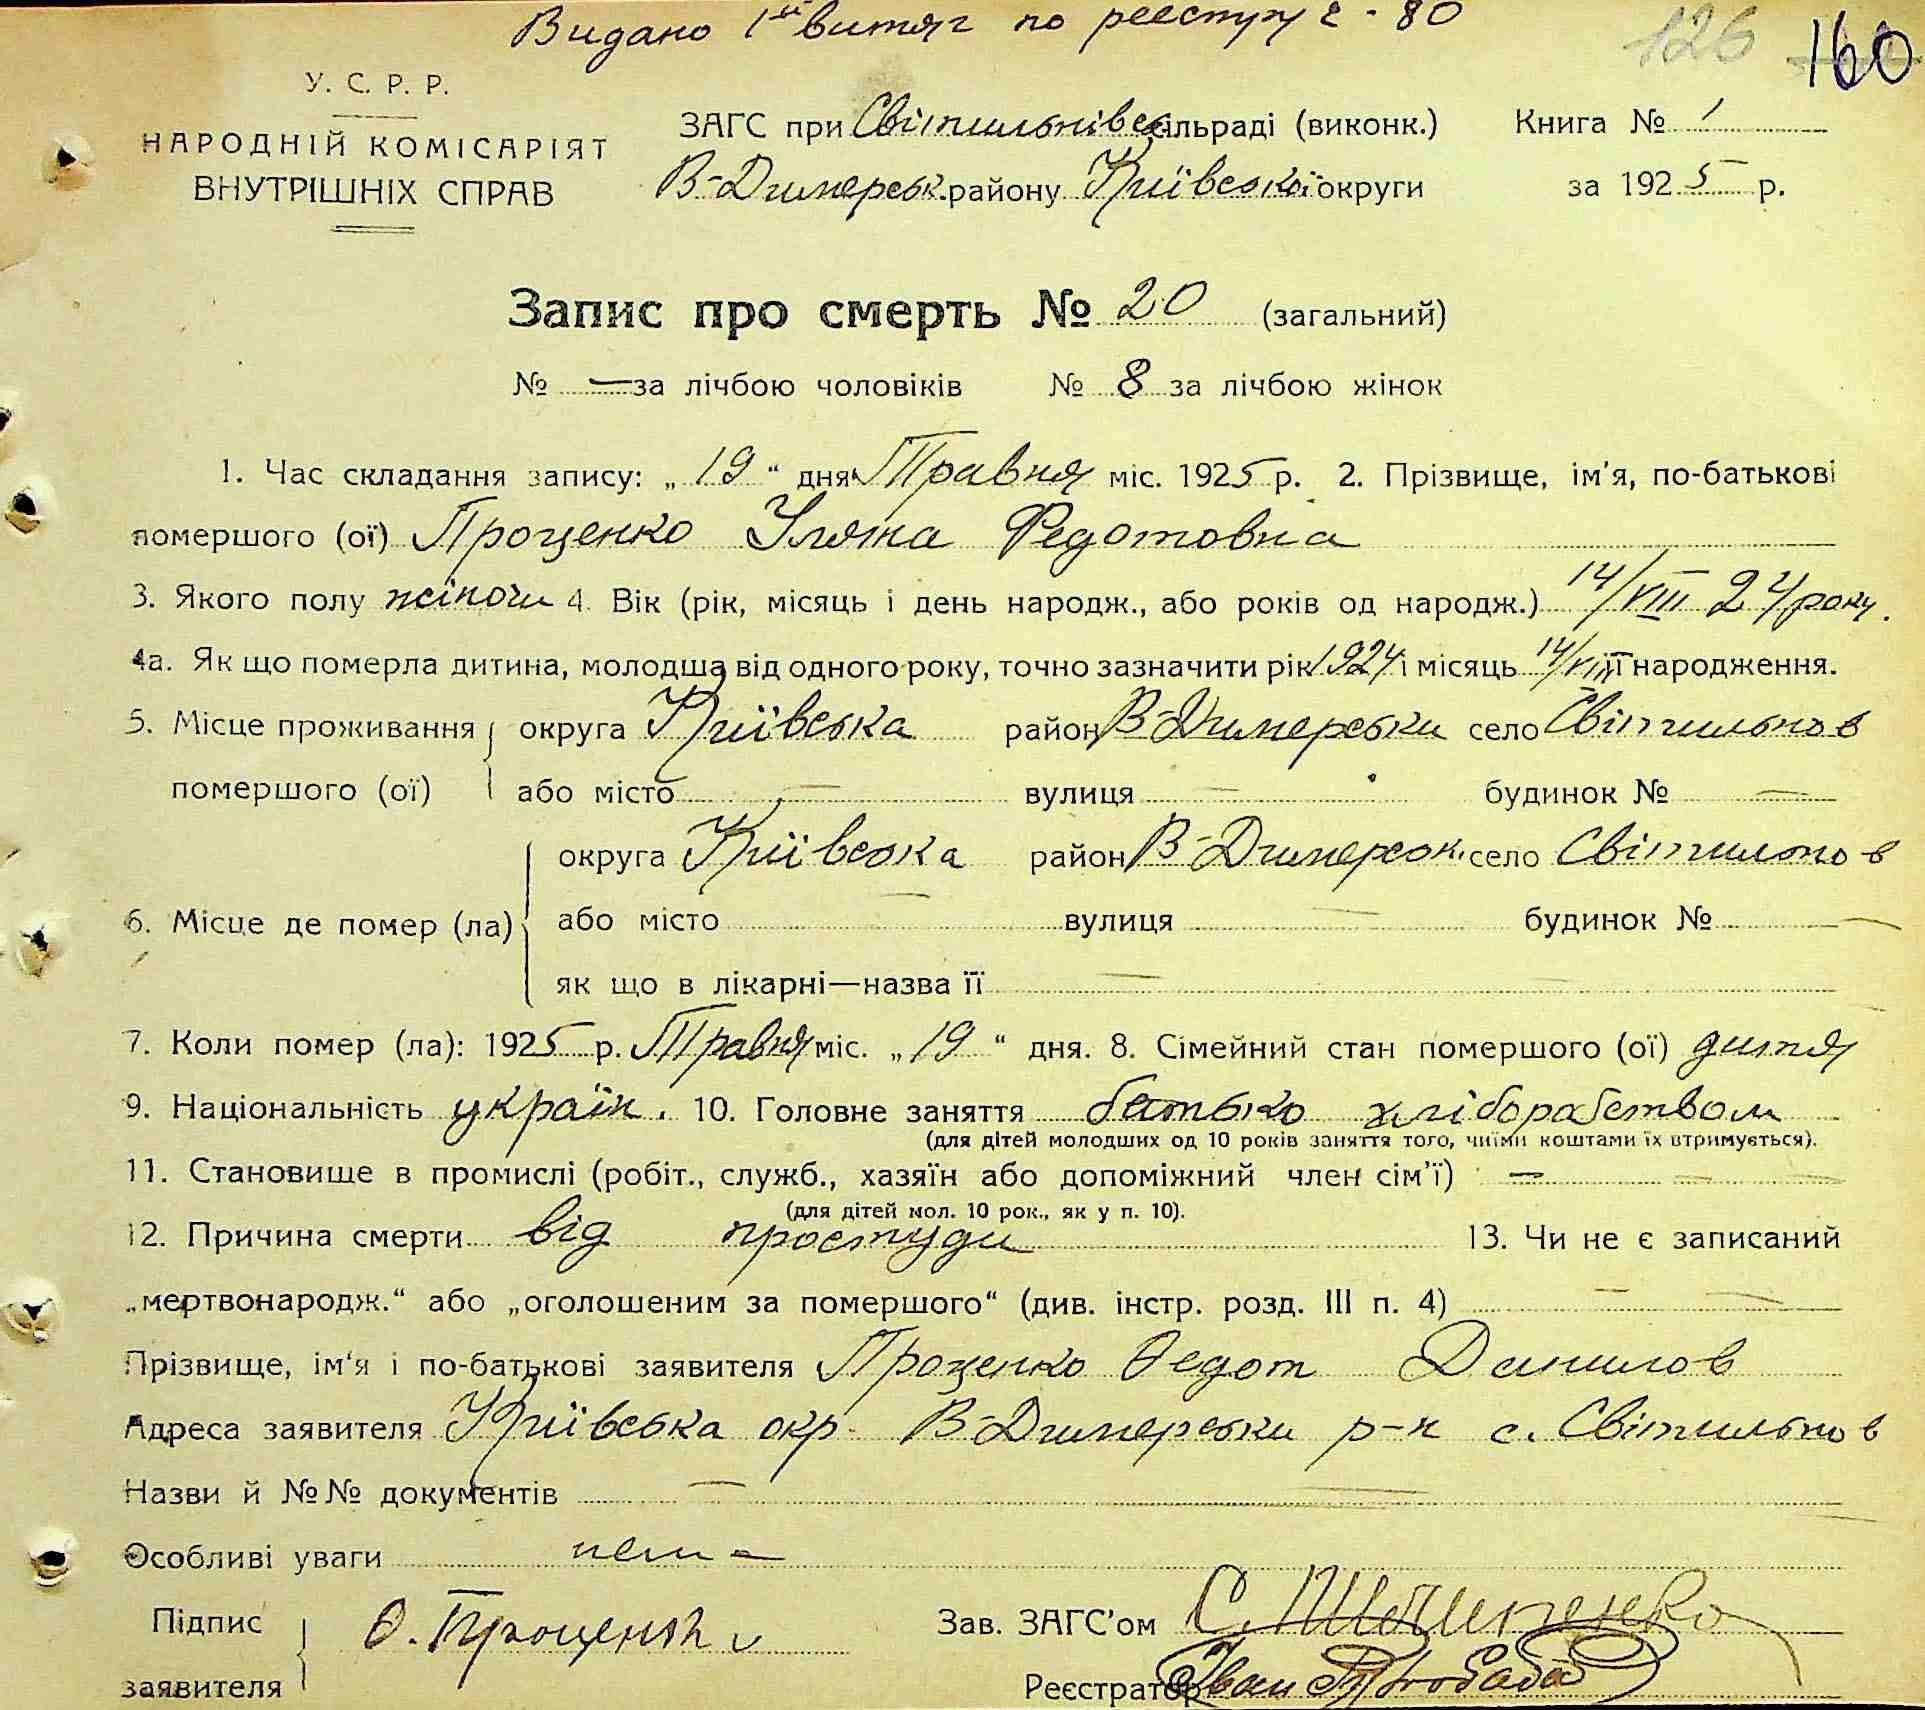 Видано 1ий витяг по реєстру č - 80
126 160
У. С. Р. Р.
НАРОДНІЙ КОМІСАРІЯТ
ВНУТРІШНІХ СПРАВ
ЗАГС при Світильнівск сільраді (виконк.) Книга № 1
В-Димерськ. району Київської округи за 1925 р.
Запис про смерть № 20 (загальний)
№ — за лічбою чоловіків № 8 за лічбою жінок
1. Час складання запису: „19“ дня Травня міс. 1925 р. 2. Прізвище, ім'я, по-батькові
помершого (ої) Проценко Уляна Федотовна
3. Якого полу жіночи 4. Вік (рік, місяць і день народж., або років од народж.) 14/VIII 24 року.
4а. Як що померла дитина, молодша від одного року, точно зазначити рік 1924 і місяць 14/VIII її народження.
5. Місце проживання округа Київська район В-Димерськи село Світильнов
помершого (ої) або місто — вулиця — будинок № —
округа Київська район В-Димерськ. село Світильнов
6. Місце де помер (ла) або місто — вулиця — будинок № —
як що в лікарні—назва її —
7. Коли помер (ла): 1925 р. Травня міс. „19“ дня. 8. Сімейний стан помершого (ої) дитя
9. Національність україн. 10. Головне заняття батько хліборабством
(для дітей молодших од 10 років заняття того, чиїми коштами їх втримується).
11. Становище в промислі (робіт., служб., хазяїн або допоміжний член сім'ї) —
(для дітей мол. 10 рок., як у п. 10).
12. Причина смерти від простуди 13. Чи не є записаний
„мертвонародж.“ або „оголошеним за помершого“ (див. інстр. розд. III п. 4) —
Прізвище, ім'я і по-батькові заявителя Проценко Федот Данилов
Адреса заявителя Київська окр. В-Димерськи р-н с. Світильнов
Назви й №№ документів —
Особливі уваги нет —
Підпис О. Проценко Зав. ЗАГС'ом С.
заявителя Реєстратор Іван